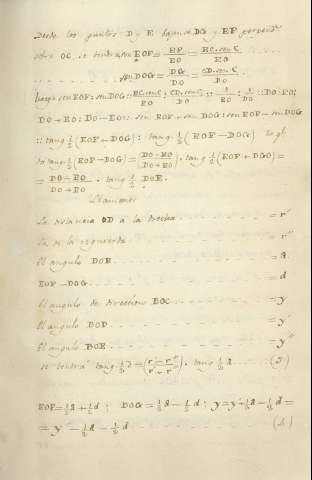 Desde los puntos D y E bajense DG y EF perpend.s
sobre OC, se tendrá sen EOF = EF/EO = EC.sen C/EO
sen DOG = DG/DO = CD.sen C/DO
luego sen EOF : sen DOG :: EC.sen C/EO : CD.sen C/DO :: 1/EO : 1/DO :: DO : EO;
DO + EO : DO - EO :: sen EOF + sen DOG : sen EOF - sen DOG
:: tang ½ (EOF + DOG) : tang ½ (EOF - DOG)
tang ½ (EOF - DOG) = (DO - EO)/(DO + EO) . tang ½ (EOF + DGO) =
= (DO - EO)/(DO + EO) . tang ½ DOE.
Llamemos
La distancia OD á la derha = r'
La de la izquierda = r''
El angulo DOE = a
EOF - DOG = d
El angulo de direccion BOC = y
El angulo BOD = y'
El angulo BOE = y''
se tendrá tang ½ d = (r' - r''/r' + r'') . tang ½ a
EOF = ½ a + ½ d ; DOG = ½ a - ½ d ; y = y' + ½ a - ½ d =
= y'' - ½ a - ½ d